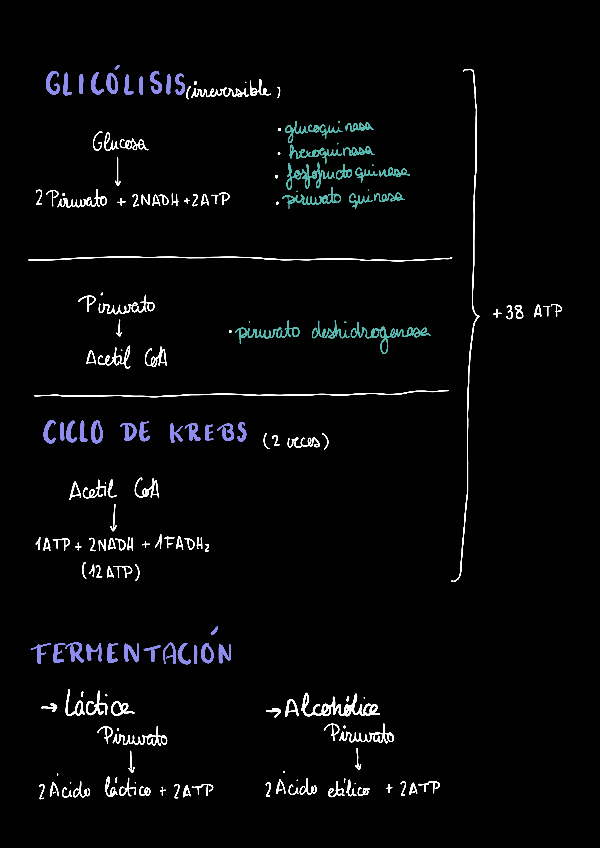 GLICÓLISIS (irreversible)
Glucosa
↓
2 Piruvato + 2NADH + 2ATP
· glucoquinasa
· hexoquinasa
· fosfofructoquinasa
· piruvato quinasa
Piruvato
↓
Acetil CoA
· piruvato deshidrogenasa
+38 ATP
CICLO DE KREBS (2 veces)
Acetil CoA
↓
1ATP + 2NADH + 1FADH₂
(12 ATP)
FERMENTACIÓN
→ Láctica
Piruvato
↓
2 Ácido láctico + 2ATP
→ Alcohólica
Piruvato
↓
2 Ácido etílico + 2ATP